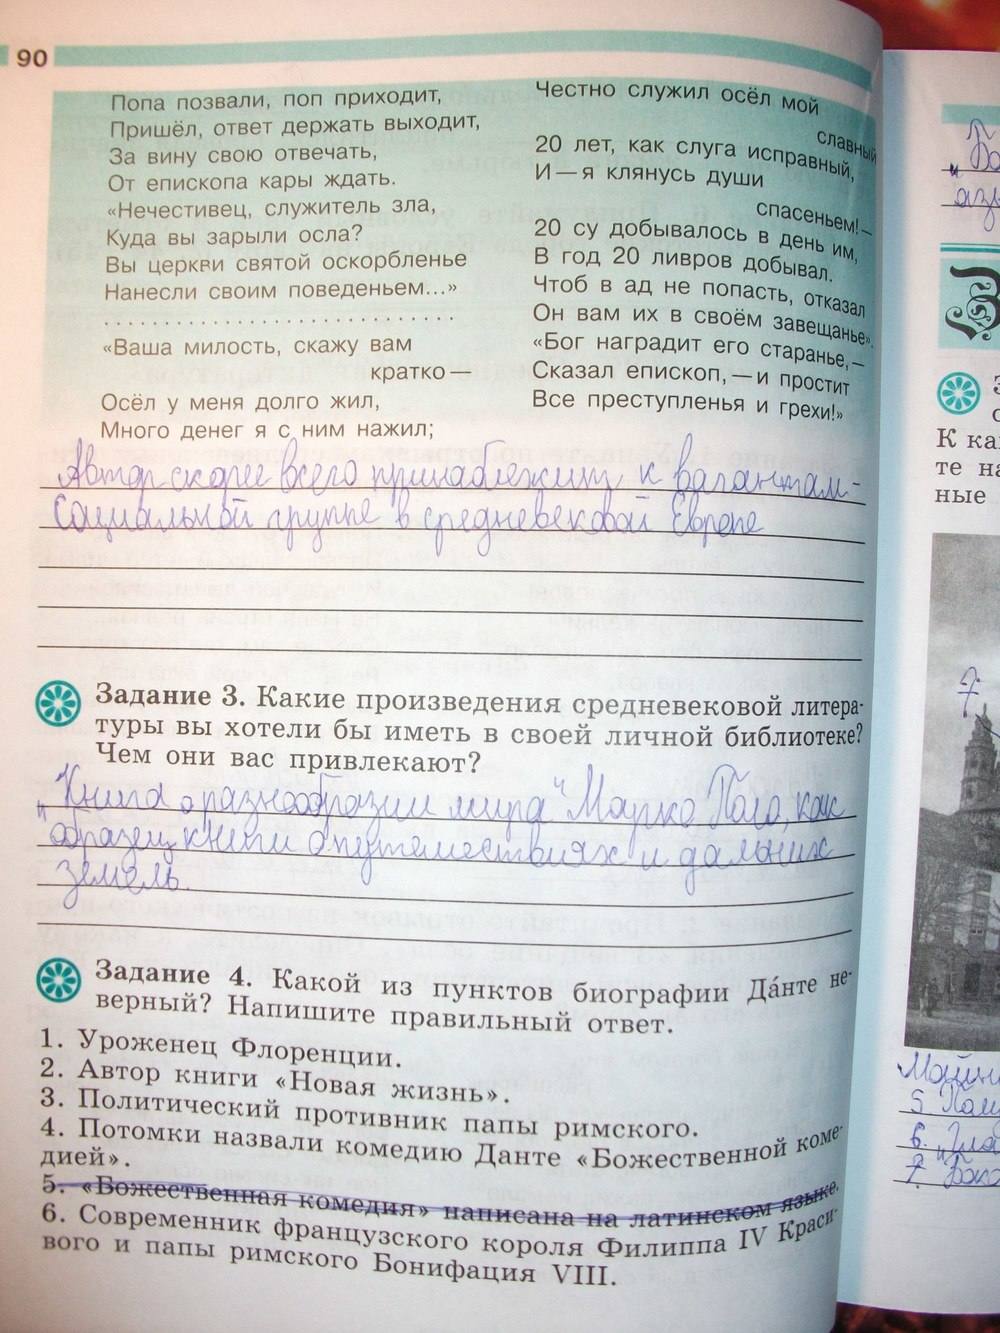 90
Попа позвали, поп приходит,
Пришёл, ответ держать выходит,
За вину свою отвечать,
От епископа кары ждать.
«Нечестивец, служитель зла,
Куда вы зарыли осла?
Вы церкви святой оскорбленье
Нанесли своим поведеньем...»
. . . . . . . . . . . . . . . . . . . . . . . . . . .
«Ваша милость, скажу вам
кратко —
Осёл у меня долго жил,
Много денег я с ним нажил;
Честно служил осёл мой
славный
20 лет, как слуга исправный,
И — я клянусь души
спасеньем! —
20 су добывалось в день им,
В год 20 ливров добывал.
Чтоб в ад не попасть, отказал
Он вам их в своём завещанье».
«Бог наградит его старанье, —
Сказал епископ, — и простит
Все преступленья и грехи!»
Автор скорее всего принадлежит к вагантам-
социальной группе в средневековой Европе
Задание 3. Какие произведения средневековой литера-
туры вы хотели бы иметь в своей личной библиотеке?
Чем они вас привлекают?
"Книга о разнообразии мира" Марко Поло, как
образец книги о путешествиях и дальних
земель.
Задание 4. Какой из пунктов биографии Да́нте не-
верный? Напишите правильный ответ.
1. Уроженец Флоренции.
2. Автор книги «Новая жизнь».
3. Политический противник папы римского.
4. Потомки назвали комедию Данте «Божественной коме-
дией».
5. «Божественная комедия» написана на латинском языке.
6. Современник французского короля Филиппа IV Краси-
вого и папы римского Бонифация VIII.
К ка
те на
ные
7.
5
6.
7.